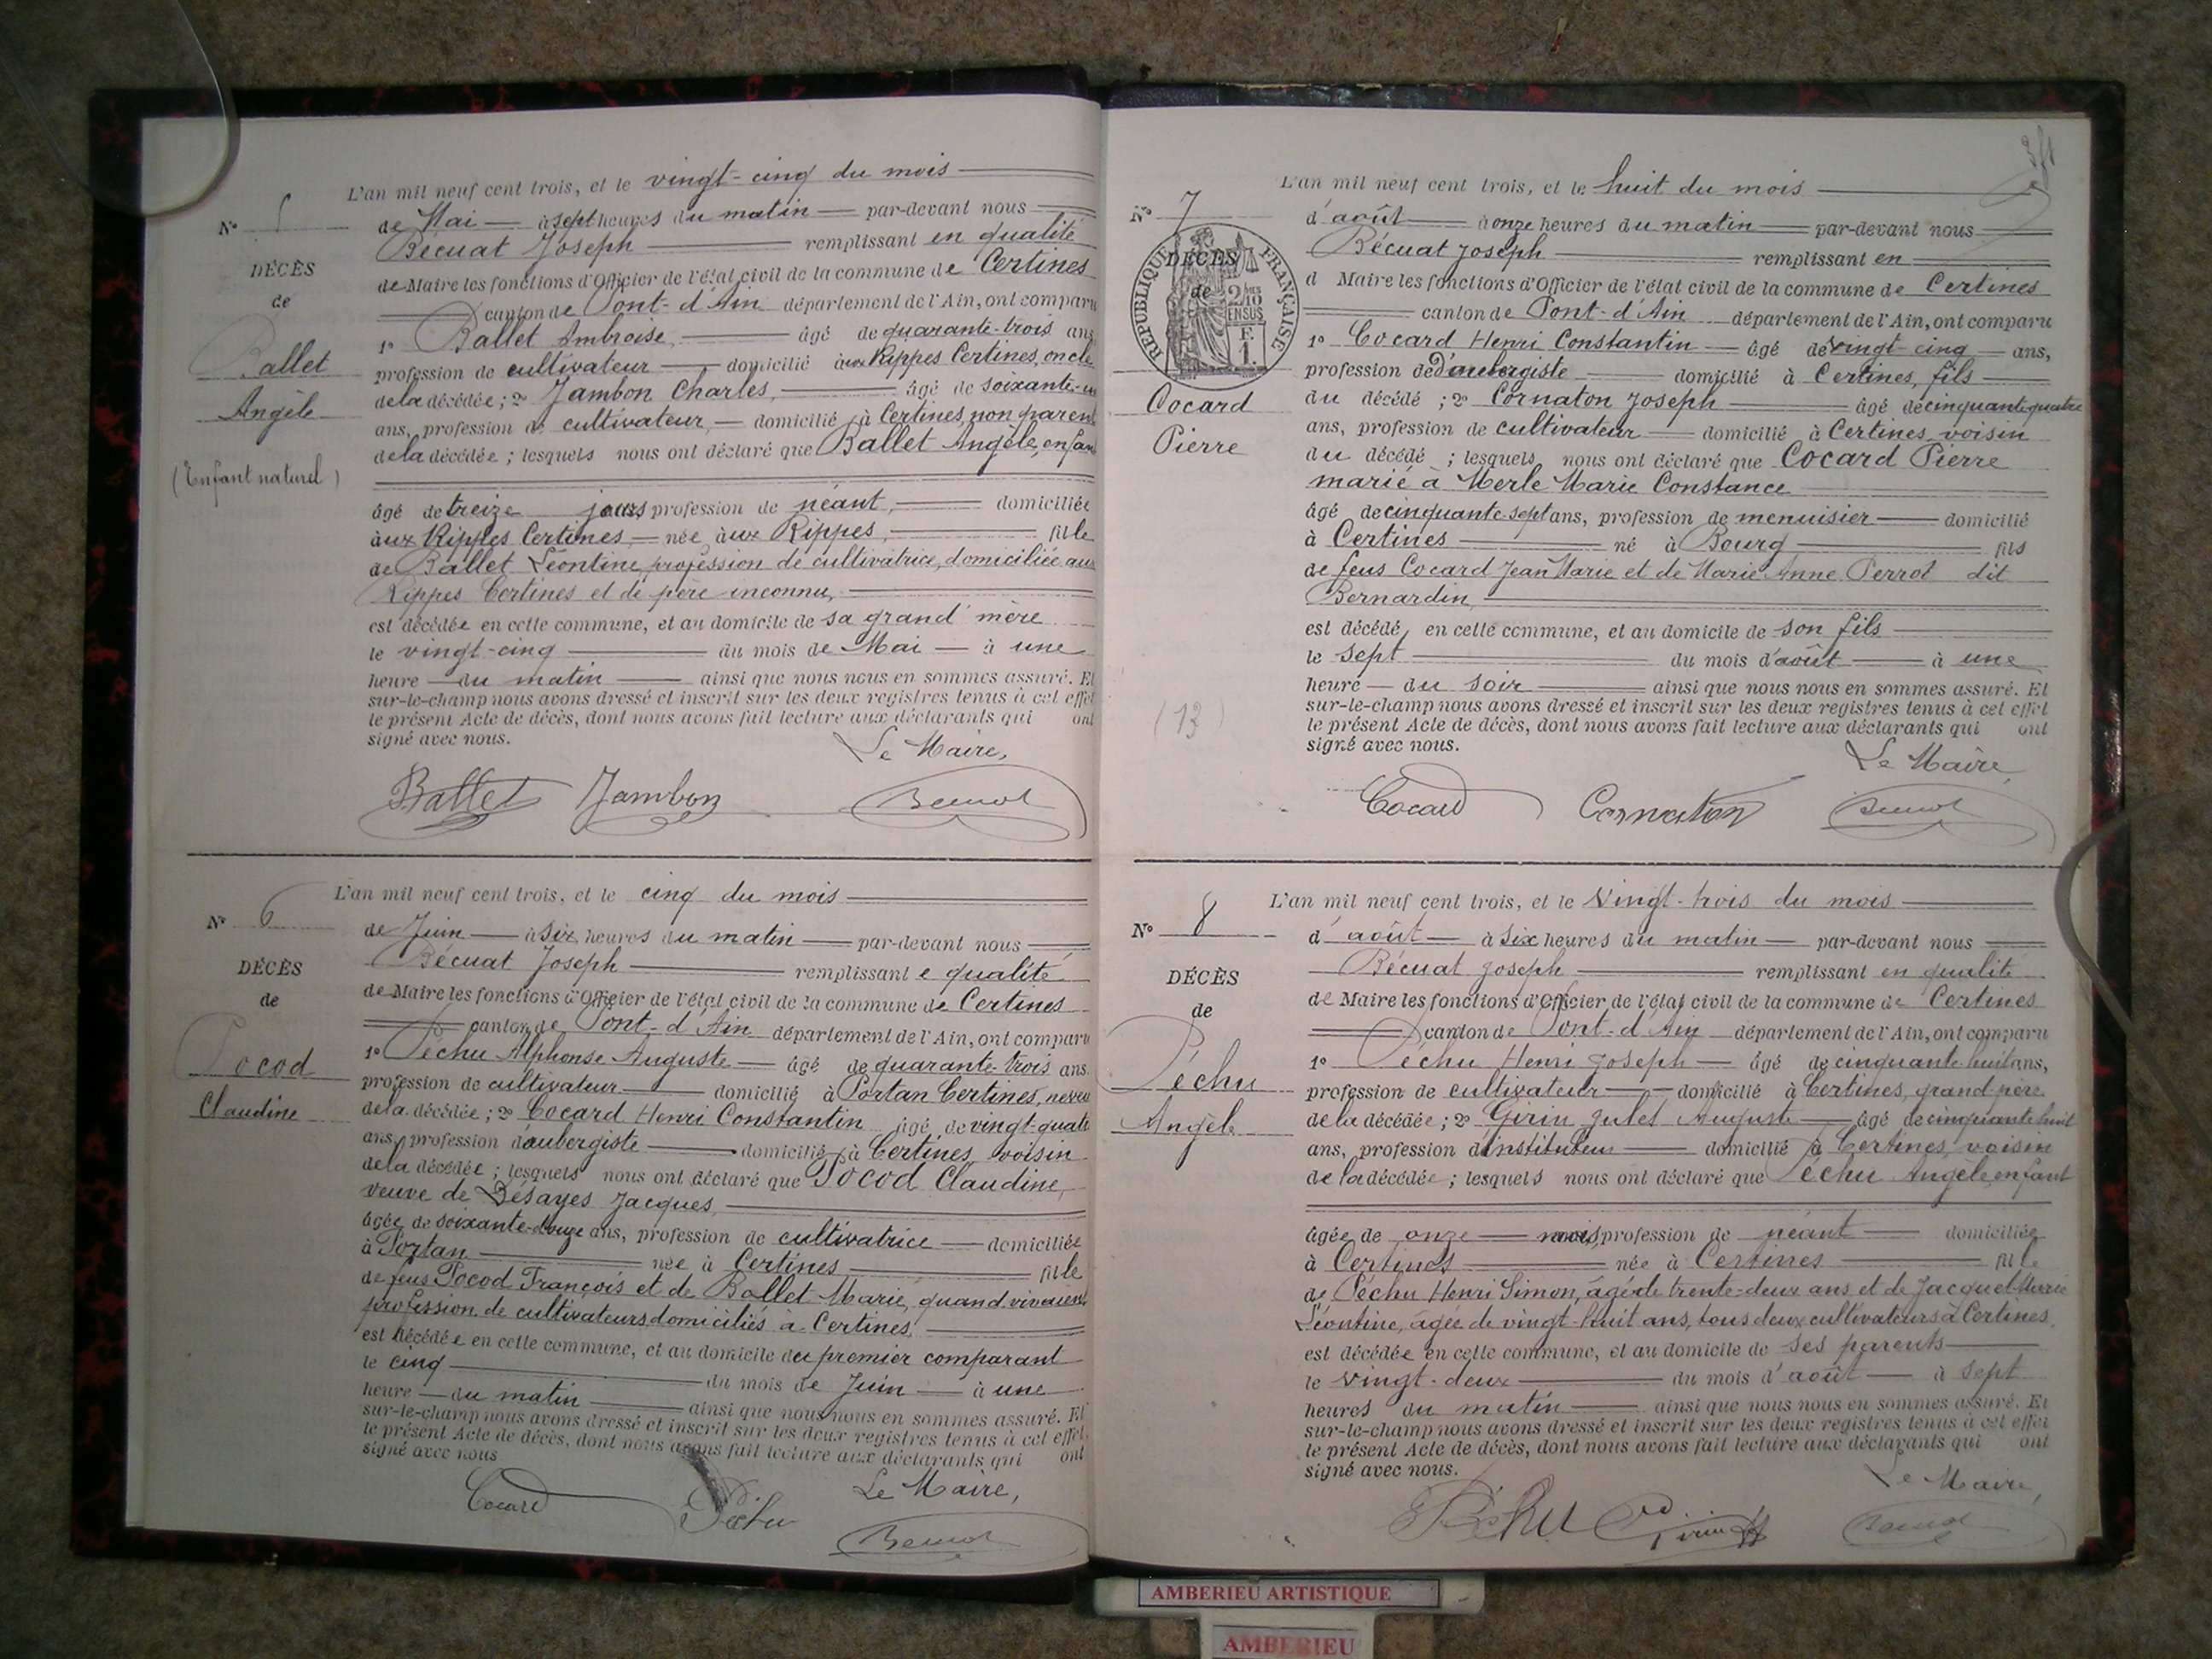 L'an mil neuf cent trois, et le vingt-cinq du mois
N° 5
de Mai à sept heures du matin par-devant nous
Bécuat Joseph remplissant en qualité
DÉCÈS
de Maire les fonctions d'Officier de l'état civil de la commune de Certines
de
canton de Pont-d'Ain département de l'Ain, ont comparu
1° Ballet Ambroise, âgé de quarante-trois ans,
Ballet
profession de cultivateur domicilié aux Rippes Certines, oncle
de la décédée ; 2° Jambon Charles, âgé de soixante-un
Angèle
ans, profession de cultivateur, domicilié à Certines, non parent
de la décédée ; lesquels nous ont déclaré que Ballet Angèle, enfant
(Enfant naturel)
âgé de treize jours profession de néant, domiciliée
aux Rippes Certines, née aux Rippes, fille
de Ballet Léontine, profession de cultivatrice, domiciliée aux
Rippes Certines et de père inconnu,
est décédée en cette commune, et au domicile de sa grand'mère
le vingt-cinq du mois de Mai à une
heure du matin ainsi que nous nous en sommes assuré. Et
sur-le-champ nous avons dressé et inscrit sur les deux registres tenus à cet effet
le présent Acte de décès, dont nous avons fait lecture aux déclarants qui ont
signé avec nous.
Le Maire,
Ballet Jambon Becuat
L'an mil neuf cent trois, et le cinq du mois
N° 6
de Juin à six heures du matin par-devant nous
Bécuat Joseph remplissant e qualité
DÉCÈS
de Maire les fonctions d'Officier de l'état civil de la commune de Certines
de
canton de Pont-d'Ain département de l'Ain, ont comparu
1° Péchu Alphonse Auguste âgé de quarante-trois ans.
Pocod
profession de cultivateur domicilié à Portan Certines, neveu
de la décédée ; 2° Cocard Henri Constantin âgé de vingt-quatre
Claudine
ans, profession d'aubergiste domicilié à Certines voisin
de la décédée ; lesquels nous ont déclaré que Pocod Claudine,
veuve de Désayes Jacques,
âgée de soixante-douze ans, profession de cultivatrice domiciliée
à Portan née à Certines fille
de feus Pocod François et de Ballet Marie, quand vivaient
profession de cultivateurs domiciliés à Certines,
est décédée en cette commune, et au domicile du premier comparant
le cinq du mois de Juin à une
heure du matin ainsi que nous nous en sommes assuré. Et
sur-le-champ nous avons dressé et inscrit sur les deux registres tenus à cet effet,
le présent Acte de décès, dont nous avons fait lecture aux déclarants qui ont
signé avec nous
Le Maire,
Cocard Péchu Becuat
L'an mil neuf cent trois, et le huit du mois
N° 7
d'août à onze heures du matin par-devant nous
Bécuat Joseph remplissant en
RÉPUBLIQUE FRANÇAISE
2/10 EN SUS
F. 1.
DÉCÈS
d Maire les fonctions d'Officier de l'état civil de la commune de Certines
de
canton de Pont-d'Ain département de l'Ain, ont comparu
1° Cocard Henri Constantin âgé de vingt-cinq ans,
profession de d'aubergiste domicilié à Certines, fils
Cocard
du décédé ; 2° Cornaton Joseph âgé de cinquante-quatre
ans, profession de cultivateur domicilié à Certines voisin
Pierre
du décédé ; lesquels nous ont déclaré que Cocard Pierre
marié à Merle Marie Constance
âgé de cinquante-sept ans, profession de menuisier domicilié
à Certines né à Bourg fils
de feus Cocard Jean Marie et de Marie Anne Perrot dit
Bernardin
est décédé, en cette commune, et au domicile de son fils
le sept du mois d'août à une
heure du soir ainsi que nous nous en sommes assuré. Et
sur-le-champ nous avons dressé et inscrit sur les deux registres tenus à cet effet
(13)
le présent Acte de décès, dont nous avons fait lecture aux déclarants qui ont
signé avec nous.
Le Maire,
Cocard Cornaton Becuat
L'an mil neuf cent trois, et le Vingt-trois du mois
N° 8
d'août à six heures du matin par-devant nous
Bécuat Joseph remplissant en qualité
DÉCÈS
de Maire les fonctions d'Officier de l'état civil de la commune de Certines
de
canton de Pont-d'Ain département de l'Ain, ont comparu
1° Péchu Henri Joseph âgé de cinquante-huit ans,
Péchu
profession de cultivateur domicilié à Certines, grand père
de la décédée ; 2° Girin Jules Auguste âgé de cinquante huit
Angèle
ans, profession d'instituteur domicilié à Certines, voisin
de la décédée ; lesquels nous ont déclaré que Péchu Angèle, enfant
âgée de onze mois, profession de néant domiciliée
à Certines née à Certines fille
de Péchu Henri Simon, âgé de trente-deux ans et de Jacquet Marie
Léontine, âgée de vingt-huit ans, tous deux cultivateurs à Certines,
est décédée en cette commune, et au domicile de ses parents
le vingt-deux du mois d'août à sept
heures du matin ainsi que nous nous en sommes assuré. Et
sur-le-champ nous avons dressé et inscrit sur les deux registres tenus à cet effet
le présent Acte de décès, dont nous avons fait lecture aux déclarants qui ont
signé avec nous.
Le Maire,
Péchu Girin Becuat
AMBERIEU ARTISTIQUE
AMBERIEU